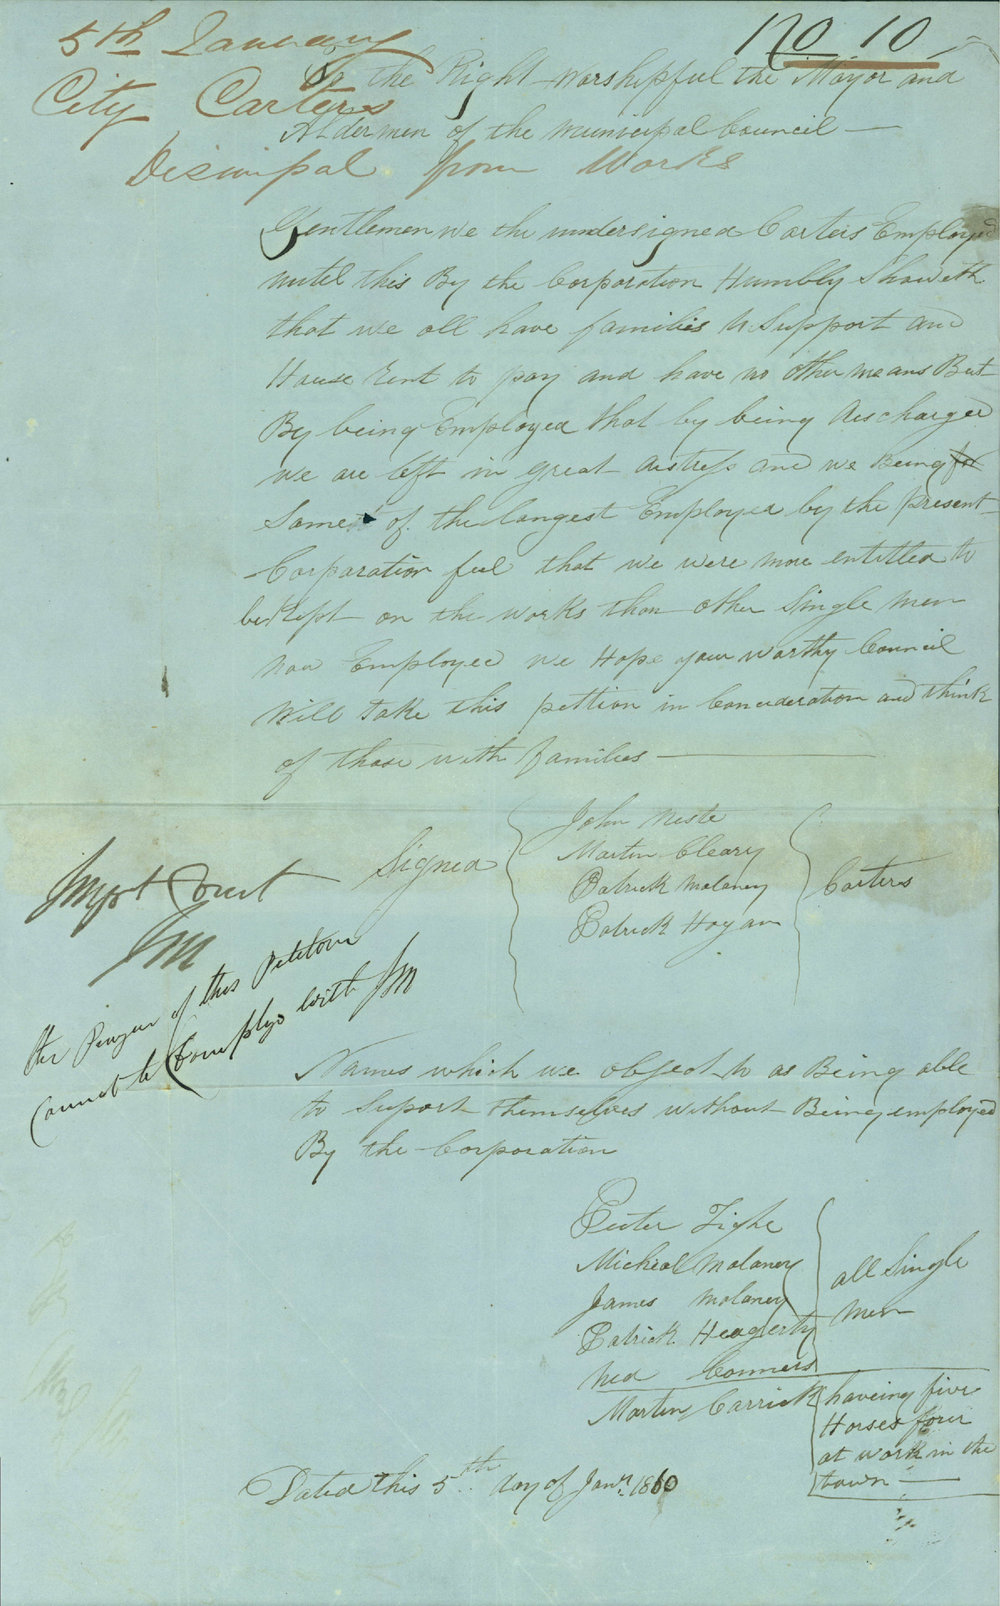 5th January
No 10
City Carters
Dismissal from Works
To the Right Worshipful the Mayor and
Aldermen of the Municipal Council —
Gentlemen we the undersigned Carters Employed
until this By the Corporation Humbly Showeth
that we all have families to Support and
House Rent to pay and have no other means But
By being Employed that by being discharged
we are left in great distress and we Being for
Some of the longest Employed by the present
Corporation feel that we were more entitled to
be Kept on the works than other Single men
now Employed we Hope your worthy Council
Will take this pettion in Concideration and think
of those with families —
Signed
John Neste
Martin Cleary
Patrick Molaney
Patrick Hogan
Carters
JM
the Prayer of this Petition
Cannot be Complyd with JM
Names which we object to as Being able
to Suport themselves without Being employed
By the Corporation
Peeter Tighe
Micheal Molaney
James Molaney
Patrick Heagerty
Ned Conners
all Single
men
Martin Carrick
haveing five
Horses four
at work in the
town —
Dated this 5th day of Jany. 1860